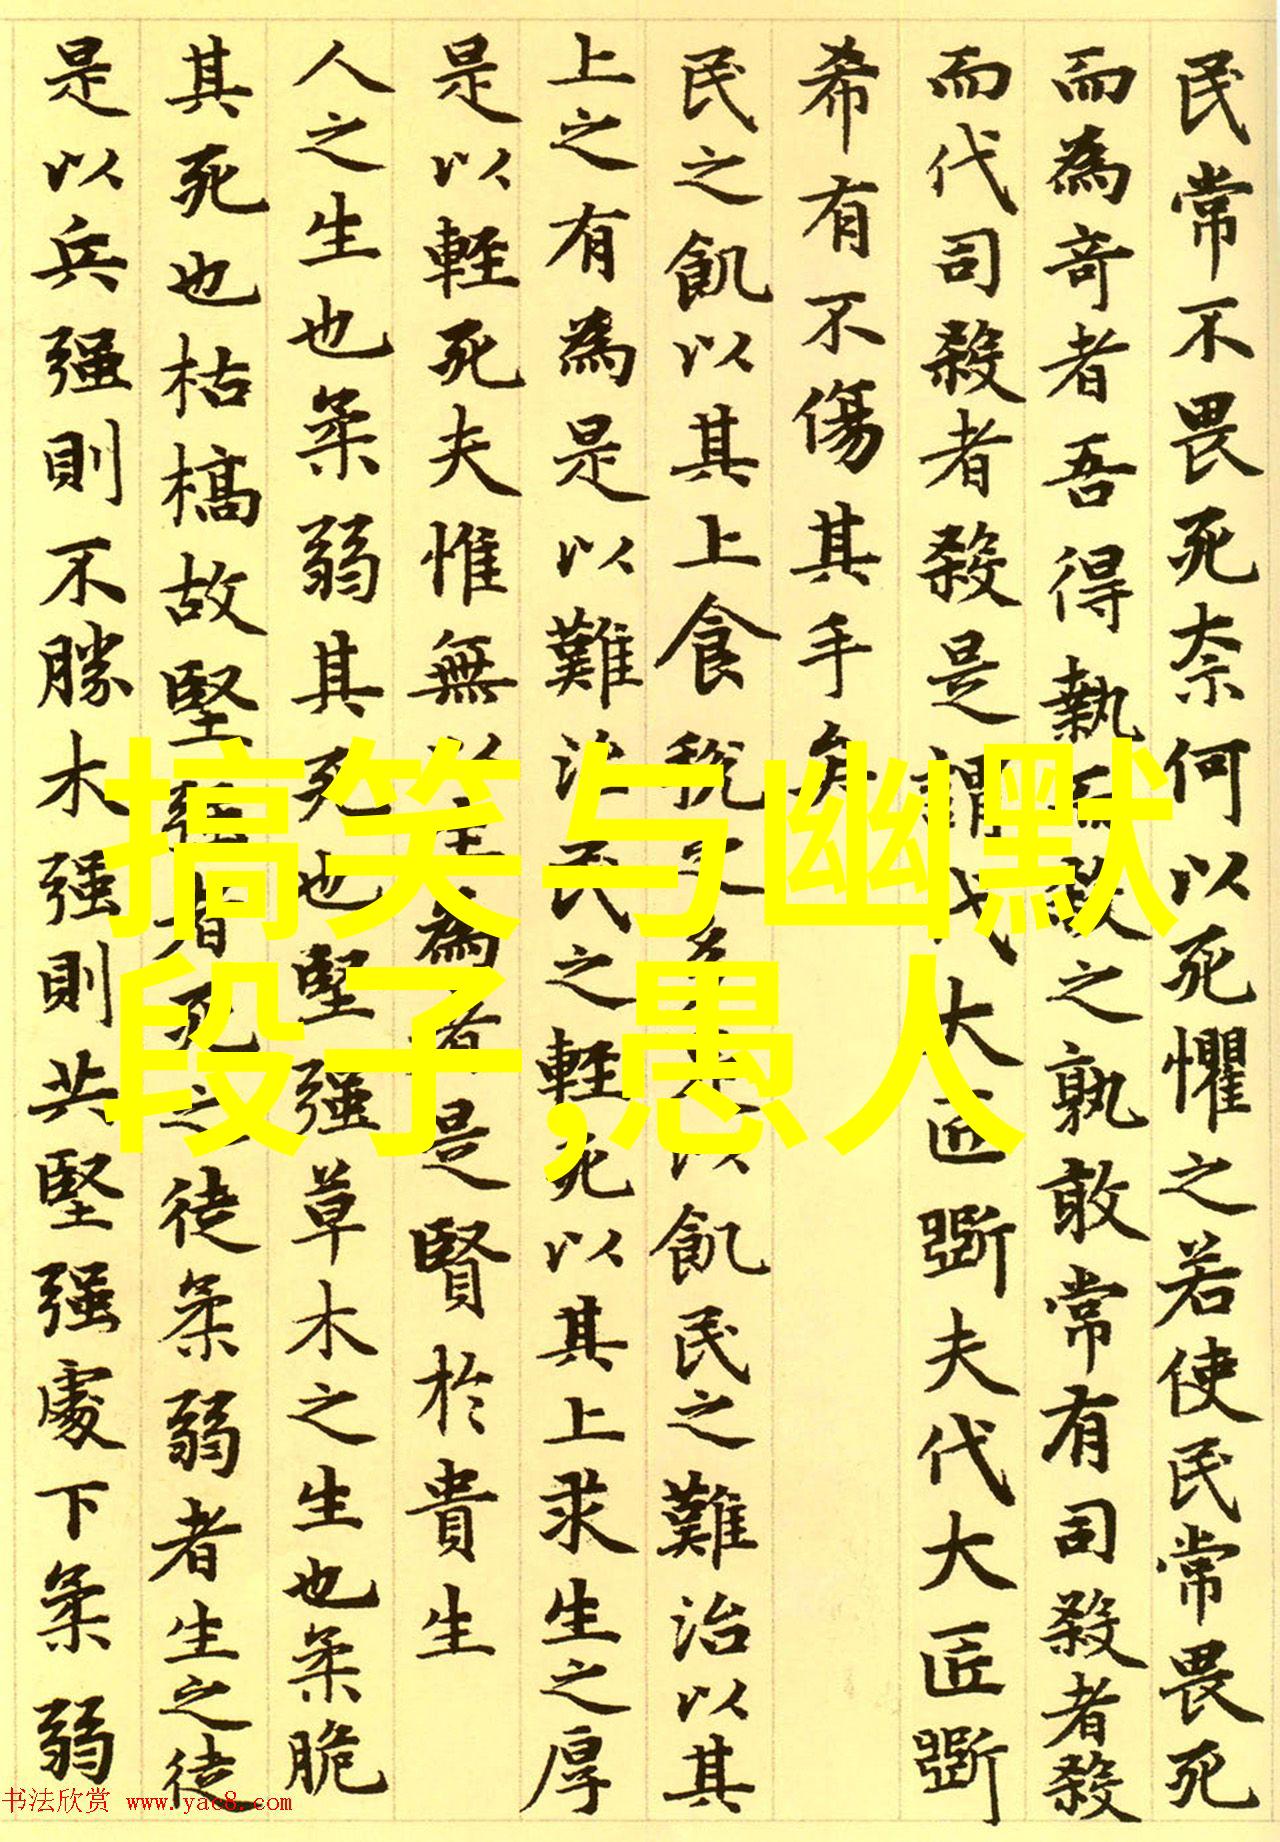 民常不畏死奈何以死懼之若使民常畏死
而為奇者吾得執而殺之孰敢常有司殺者殺
而代司殺者殺是謂代大匠斲夫代大匠斲
希有不傷其手矣
民之飢以其上食稅之多是以飢民之難治以其
上之有為是以難治民之輕死以其上求生之厚
是以輕死夫惟無以生為者是賢於貴生
人之生也柔弱其死也堅强草木之生也柔脆
其死也枯槁故堅强者死之徒柔弱者生之徒
是以兵强則不勝木强則共堅强處下柔弱
搞笑与幽默
段子,愚人
书法欣赏 www.yac8.com